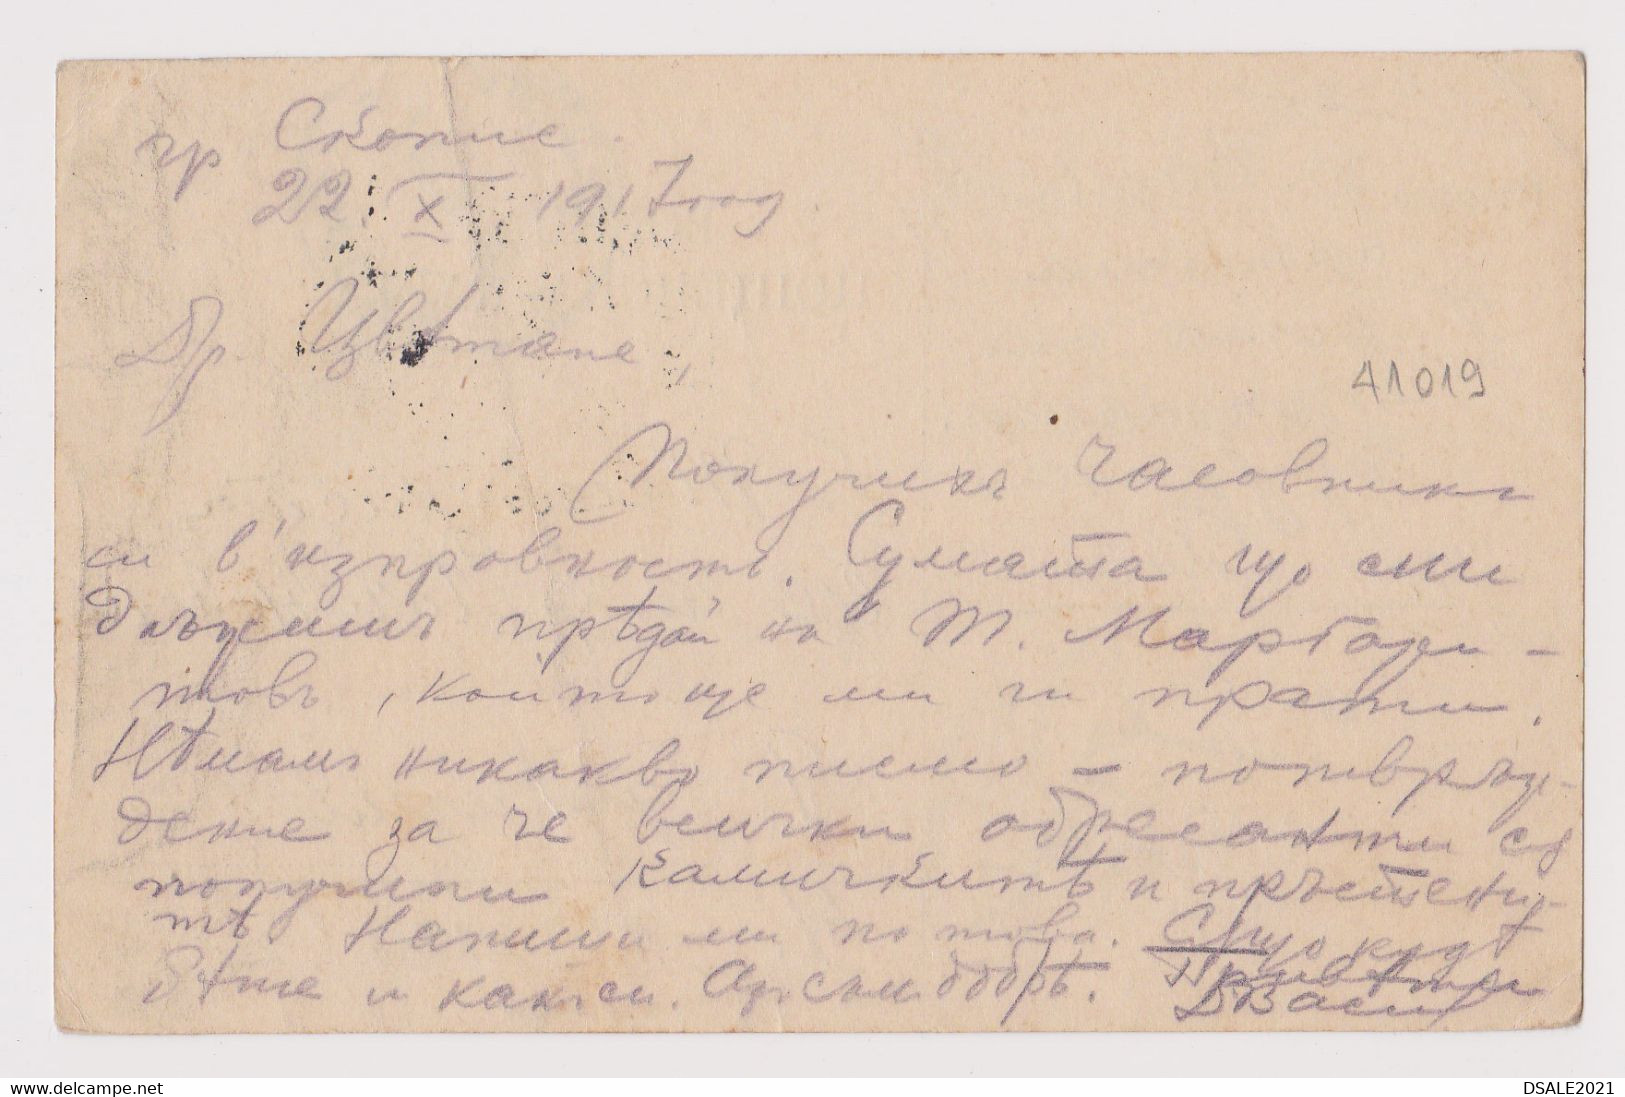 гр Скопие.
22. X 1917 год.
Др. Цвѣтане,
41019
Получихъ часовника
си в' изправность. Сумата що сми
длъжимъ прѣдай на Т.
товъ, които ще ми ги прати.
Нѣмамъ никакво писмо – потвръж-
дение за че всички адресанти сѫ
получили камичкитѣ и пръстени-
тѣ Напиши ми по това. Също кждѣ
бѣше и какъ си. Азъ съм добрѣ. Привѣти
ДВасил
DSALE2021
www.delcampe.net